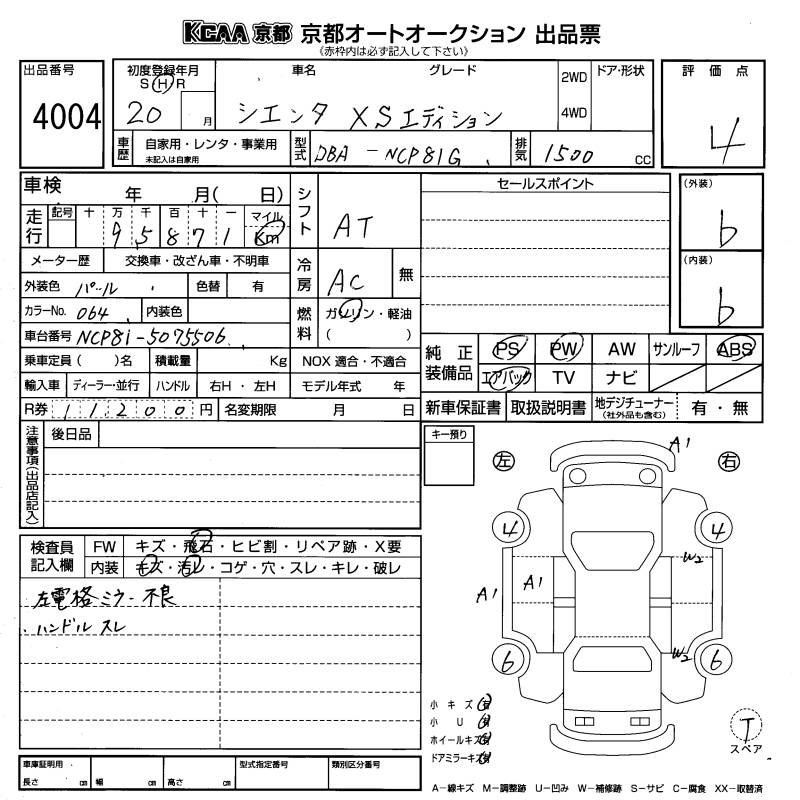 KCAA 京都 京都オートオークション 出品票
《赤枠内は必ず記入して下さい》
出品番号 初度登録年月 車名 グレード 2WD ドア・形状 評価点
S H R
4004 20 月 シエンタ XSエディション 4WD 4
車歴 自家用・レンタ・事業用 型式 DBA-NCP81G 排気 1500 CC
未記入は自家用
車検 年 月( 日) シフト AT セールスポイント (外装)
走行 記号 十 万 千 百 十 一 マイル b
9 5 8 7 1 Km
メーター歴 交換車・改ざん車・不明車 冷房 AC 無 (内装)
外装色 パール 色替 有 b
カラーNo. 064 内装色 燃料 ガソリン・軽油
車台番号 NCP81-5075506 ( )
乗車定員( )名 積載量 Kg NOX 適合・不適合 純正装備品 PS PW AW サンルーフ ABS
輸入車 ディーラー・並行 ハンドル 右H・左H モデル年式 年 エアバック TV ナビ
R券 11200円 名変期限 月 日 新車保証書 取扱説明書 地デジチューナー 有・無
(社外品も含む)
注意事項(出品店記入) 後日品 キー預り
左 右
A1
4 4
検査員記入欄 FW キズ・飛石・ヒビ割・リペア跡・X要
内装 キズ・汚レ・コゲ・穴・スレ・キレ・破レ
W2
A1 A1
左電格ミラー不良
ハンドル スレ
W2
6 6
小キズ 有
小U 有
ホイールキズ 有
ドアミラーキズ 有
T
スペア
車庫証明用 型式指定番号 類別区分番号
長さ cm 幅 cm 高さ cm
A-線キズ M-調整跡 U-凹み W-補修跡 S-サビ C-腐食 XX-取替済